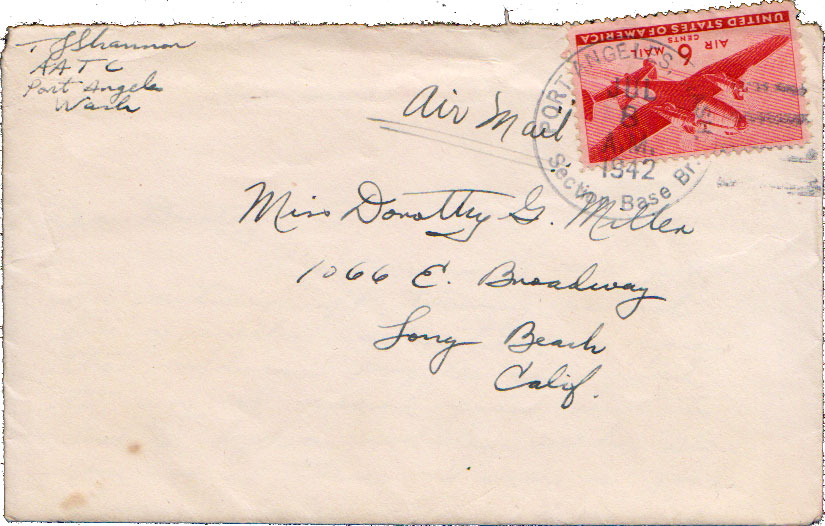 T J Shannon
AATC
Port Angeles
Wash
Air Mail
UNITED STATES OF AMERICA
AIR 6 MAIL
CENTS
PORT ANGELES
JUL
8
A.M.
1942
Section Base Br.
Miss Dorothy G. Miller
1066 E. Broadway
Long Beach
Calif.